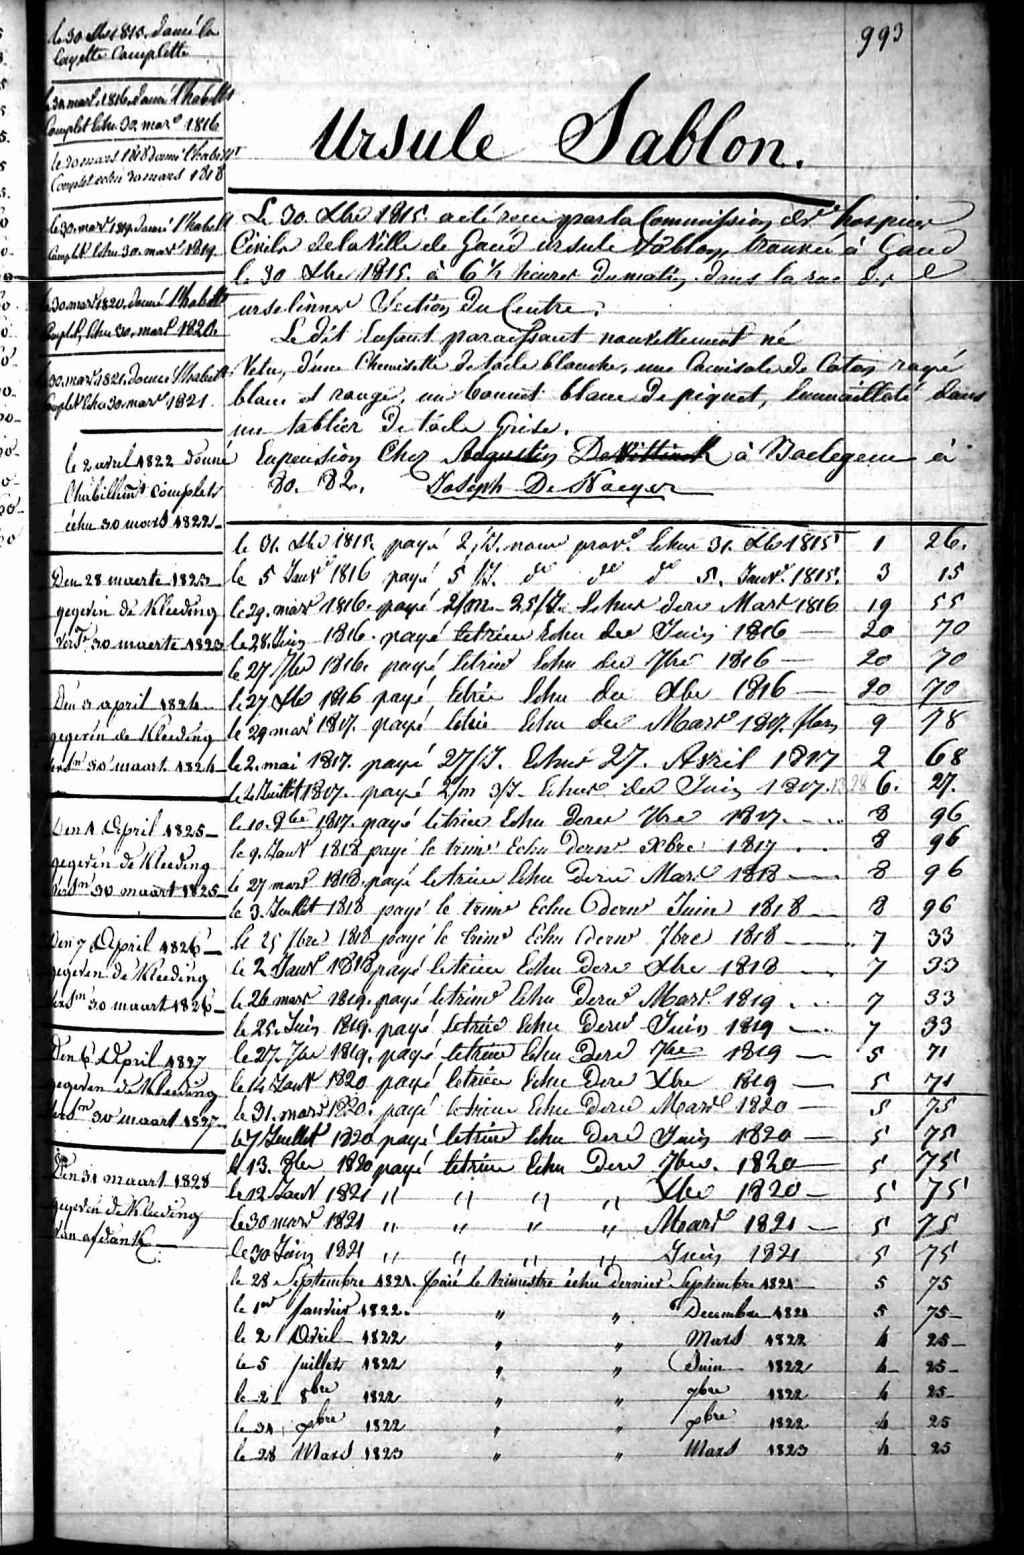 993
Ursule Sablon.
le 30 Xbre 1815. donné la
layette Complette
le 30. mars 1816. donné l'habillt
Complet Echu 30. mars 1816
le 30 mars 1818 donné l'habillt
Complet echu 30 mars 1818
le 30. mars 1819. donné l'habillt
Complet Echu 30. mars 1819.
le 30 mars 1820. donné l'habillt
Complet, Echu 30. mars 1820.
le 30. mars 1821. donné l'habillt
Complet Echu 30. mars 1821.
le 2 avril 1822 donné
l'habillmt complets
échu 30 mars 1822
Den 28 maerte 1823
gegeven de Kleeding
verst 30 maerte 1823
Den 3 april 1824
gegeven de Kleeding
30 maart 1824
Den 1 April 1825
gegeven de Kleeding
30 maart 1825
Den 7 April 1826
gegeven de Kleeding
30 maart 1826
Den 6 April 1827
gegeven de Kleeding
30 maart 1827
Den 31 maart 1828
gegeven de Kleeding
van afdank
Le 30. Xbre 1815. a été recu par la Commission des hospices
Civils de la Ville de Gand ursule Sablon, trouvée à Gand
le 30 Xbre 1815. à 6½ heures du matin dans la rue des
urselinnes Section du Centre.
Le dit Enfant paraissant nouvellement né
Vetu, d'une Chemisette de toile blanche, une Camisole de Coton rayé
blanc et rouge, un bonnet blanc de piquet, Emmailloté dans
un tablier de toile Grise.
En pension Chez Augustin De Vittinck à Baelegem à
80. 82. Joseph De Naeyer
le 31. Xbre 1815. payé 2/J. nour prove Echus 31. Xbre 1815 1 26.
le 5 Janvr 1816 payé 5/J. do do do 5. Janvr. 1815. 3 15
le 29. mars 1816. payé 2/m 25/J. Echus dere Mars 1816 19 55
le 28. Juin 1816. payé letrim Echu der Juin 1816 20 70
le 27 7bre 1816. payé letrim Echu der 7bre 1816 20 70
le 27 Xbre 1816 payé letrim Echu der Xbre 1816 20 70
le 29 mars 1817. payé letrim Echu der Mars 1817. 9 78
le 2. mai 1817. payé 27/J. Echus 27. Avril 1817 2 68
le 2. Juillet 1817. payé 2/m 3/J. Echus der Juin 1817. 1328 6. 27.
le 10. 8bre 1817. payé letrim Echu dere 7bre 1817. 8 96
le 9. Janvr 1818 payé le trimr Echu dernr Xbre 1817 8 96
le 27 mars 1818. payé letrim Echu dere Mars 1818 8 96
le 3. Juillet 1818 payé le trimr Echu dernr Juin 1818 8 96
le 25 7bre 1818 payé le trimr Echu dernr 7bre 1818 7 33
le 2 Janvr 1818 payé letrim Echu dere Xbre 1818 7 33
le 26 mars 1819. payé letrim Echu dere Mars 1819 7 33
le 25. Juin 1819. payé letrim Echu dere Juin 1819 7 33
le 27. 7bre 1819. payé letrim Echu dere 7bre 1819 5 71
le 14 Janvr 1820 payé letrim Echu dere Xbre 1819 5 71
le 31. mars 1820. payé letrim Echu dere Mars 1820 5 75
le 7 Juillet 1820 payé letrim Echu dere Juin 1820 5 75
le 13. 8bre 1820 payé letrim Echu dere 7bre. 1820 5 75
le 12 Janvr 1821 " " " " Xbre 1820 5 75
le 30 mars 1821 " " " " Mars 1821 5 75
le 30 Juin 1821 " " " " Juin 1821 5 75
le 28 Septembre 1821. paié le trimestre échu dernier Septembre 1821 5 75
le 1er Janvier 1822. " " Decembre 1821 5 75
le 2 Avril 1822 " " Mars 1822 4 25
le 5 Juillet 1822 " " Juin 1822 4 25
le 2 8bre 1822 " " 7bre 1822 4 25
le 31 xbre 1822 " " xbre 1822 4 25
le 28 Mars 1823 " " Mars 1823 4 25